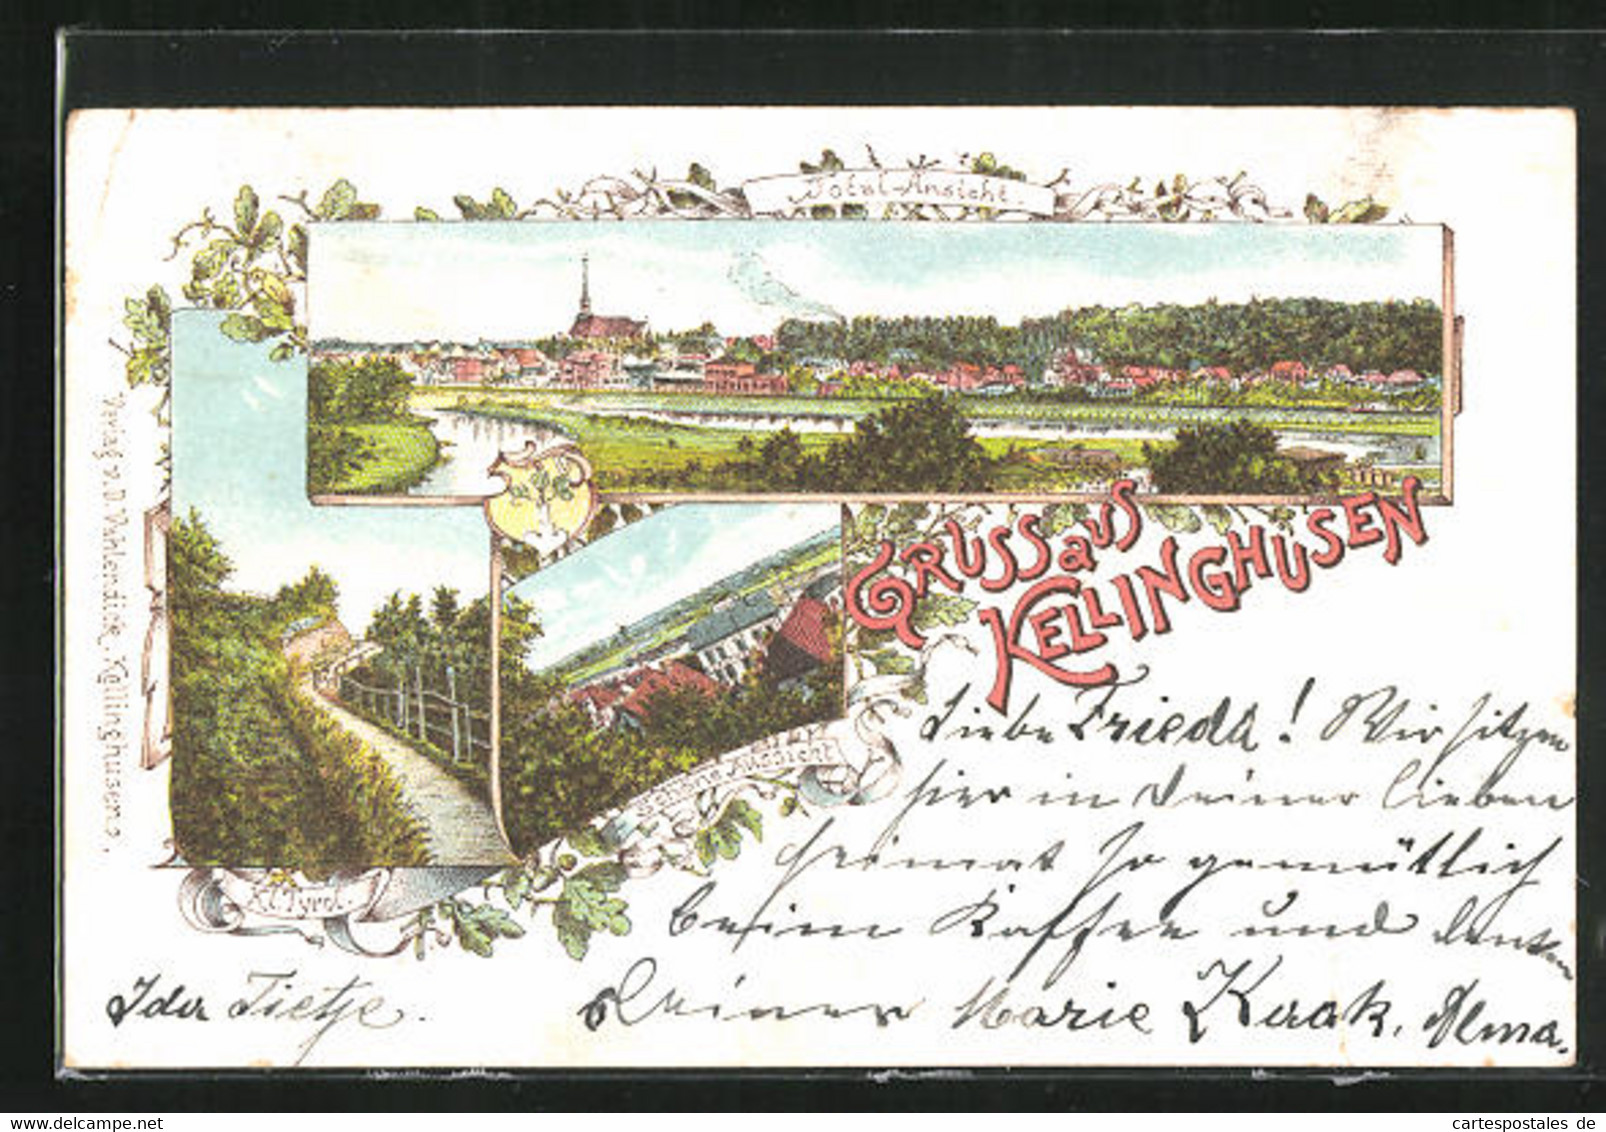 Total-Ansicht.
GRUSS aus
KELLINGHUSEN
Schöne Aussicht
Kl. Tyrol.
Verlag v. D. Kellinghusen
Liebe Frieda! Wir sitzen
hier in Deiner lieben
Heimat so gemütlich
beim Kaffee und denken
Deiner Marie Kaak, Alma.
Ida Tietje.
www.delcampe.net
cartespostales de